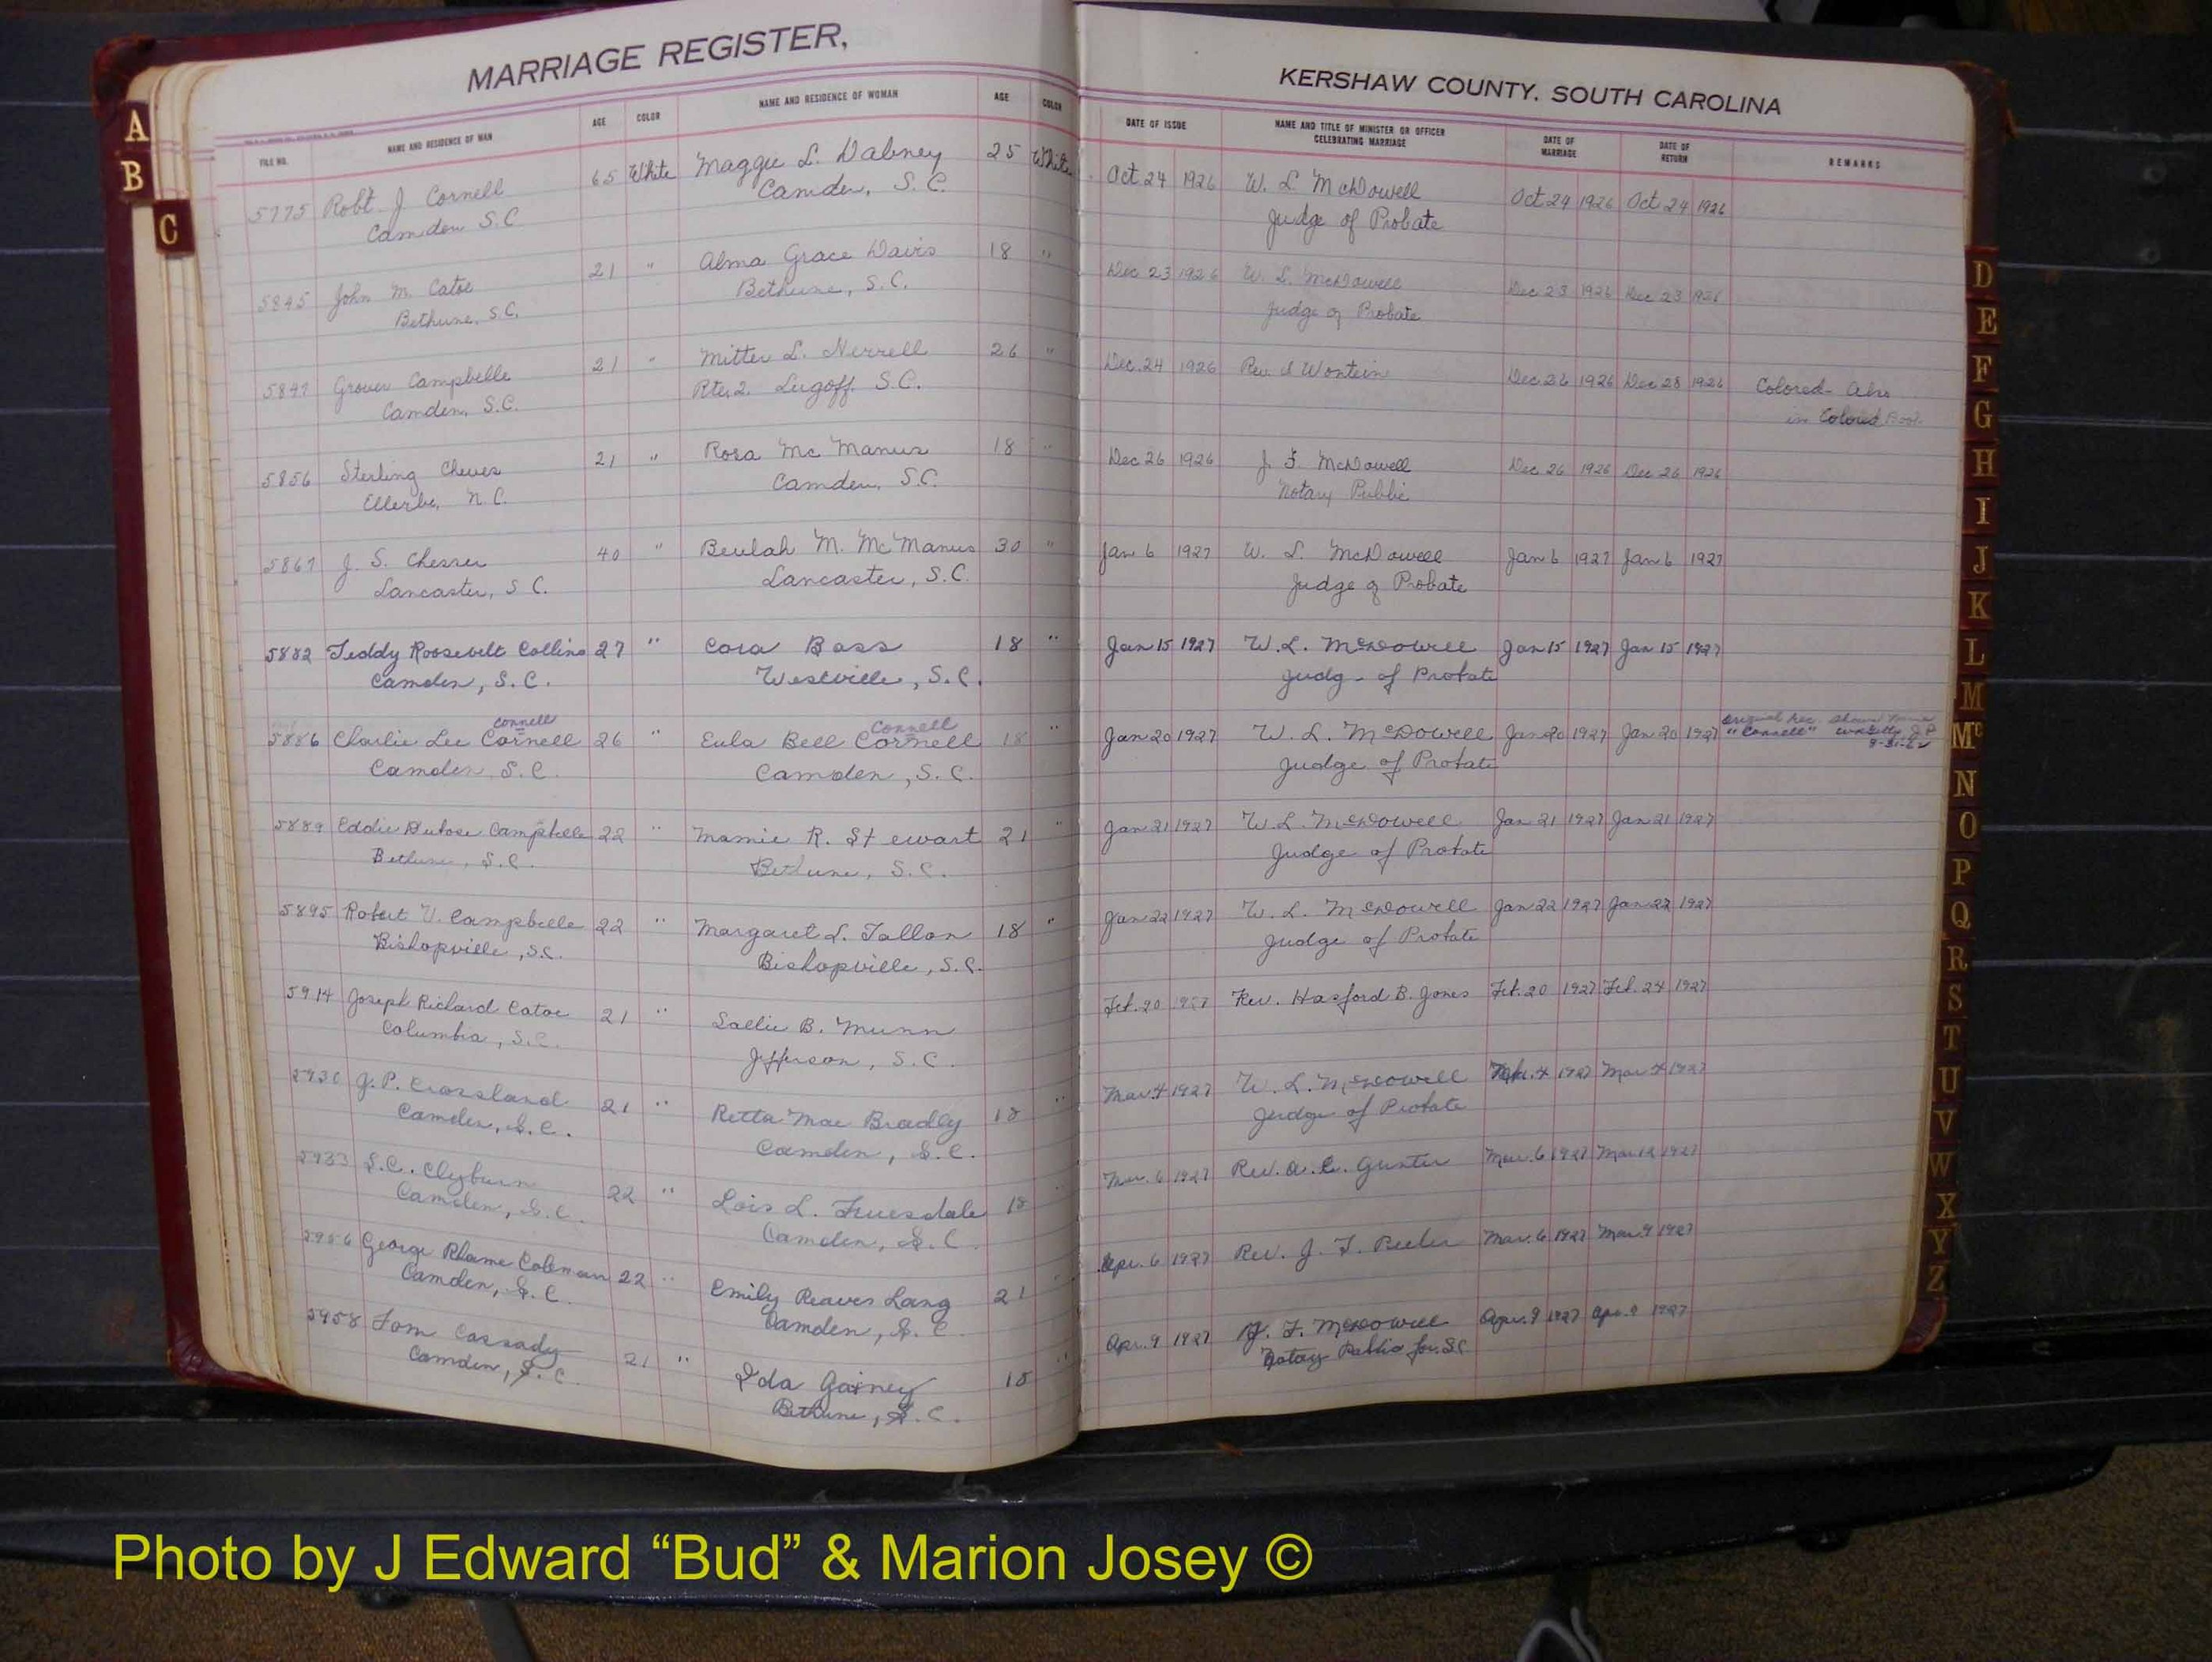 MARRIAGE REGISTER,
FILE NO. NAME AND RESIDENCE OF MAN AGE COLOR NAME AND RESIDENCE OF WOMAN AGE COLOR
5775 Robt. J. Cornell 65 White Maggie L. Dabney 25 White
Camden S.C. Camden, S.C.
5845 John M. Catoe 21 " Alma Grace Davis 18 "
Bethune, S.C. Bethune, S.C.
5847 Grover Campbelle 21 " Mitter L. Nerrell 26 "
Camden, S.C. Rte. 2. Lugoff. S.C.
5856 Sterling Cheves 21 " Rosa McManus 18 "
Ellerbe, N.C. Camden, S.C.
5867 J. S. 40 " Beulah M. McManus 30 "
Lancaster, S.C. Lancaster, S.C.
5882 Teddy Roosevelt Collins 27 " Cora Bass 18 "
Camden, S.C. Westville, S.C.
Connell Connell
5886 Charlie Lee Cornell 26 " Eula Bell Cornell 18 "
Camden, S.C. Camden, S.C.
5889 Eddie Dubose Campbelle 22 " Mamie R. Stewart 21 "
Bethune, S.C. Bethune, S.C.
5895 Robert V. Campbelle 22 " Margaret L. Tallon 18 "
Bishopville, S.C. Bishopville, S.C.
5914 Joseph Richard Catoe 21 " Sallie B. Munn
Columbia, S.C. Jefferson, S.C.
5930 J.P. Crossland 21 " Retta Mae Bradly 18 "
Camden, S.C. Camden, S.C.
5933 S.C. Clyburn 22 " Lois L. Truesdale 18
Camden, S.C. Camden, S.C.
George Rhame Coleman 22 " Emily Reaves Lang 21
Camden, S.C. Camden, S.C.
5958 Tom Cassady 21 " Ida Gainey 18 "
Camden, S.C. Bethune, S.C.
KERSHAW COUNTY. SOUTH CAROLINA
DATE OF ISSUE NAME AND TITLE OF MINISTER OR OFFICER CELEBRATING MARRIAGE DATE OF MARRIAGE DATE OF RETURN REMARKS
Oct 24 1926 W. L. McDowell Oct 24 1926 Oct 24 1926
Judge of Probate
Dec 23 1926 W. L. McDowell Dec 23 1926 Dec 23 1926
Judge of Probate
Dec. 24 1926 Rev. Dec 26 1926 Dec 28 1926 Colored - Also
in Colored Book
Dec 26 1926 J. F. McDowell Dec 26 1926 Dec 26 1926
Notary Public
Jan 6 1927 W. L. McDowell Jan 6 1927 Jan 6 1927
Judge of Probate
Jan 15 1927 W. L. McDowell Jan 15 1927 Jan 15 1927
Judge of Probate
Jan 20 1927 W. L. McDowell Jan 20 1927 Jan 20 1927 Original Rec. shows name
"Connell"
Judge of Probate
Jan 21 1927 W. L. McDowell Jan 21 1927 Jan 21 1927
Judge of Probate
Jan 22 1927 W. L. McDowell Jan 22 1927 Jan 22 1927
Judge of Probate
Feb. 20 1927 Rev. Hasford B. Jones Feb. 20 1927 Feb. 24 1927
Mar 4 1927 W. L. McDowell Mar. 4 1927 Mar 4 1927
Judge of Probate
Mar. 6 1927 Rev. A. C. Gunter Mar. 6 1927 Mar 12 1927
Apr. 6 1927 Rev. J. T. Peeler Mar. 6 1927 Mar. 9 1927
Apr. 9 1927 J. F. McDowell Apr. 9 1927 Apr. 9 1927
Notary Public for S.C.
A
B
C
D
E
F
G
H
I
J
K
L
M
Mc
N
O
P
Q
R
S
T
U
V
W
X
Y
Z
Photo by J Edward “Bud” & Marion Josey ©